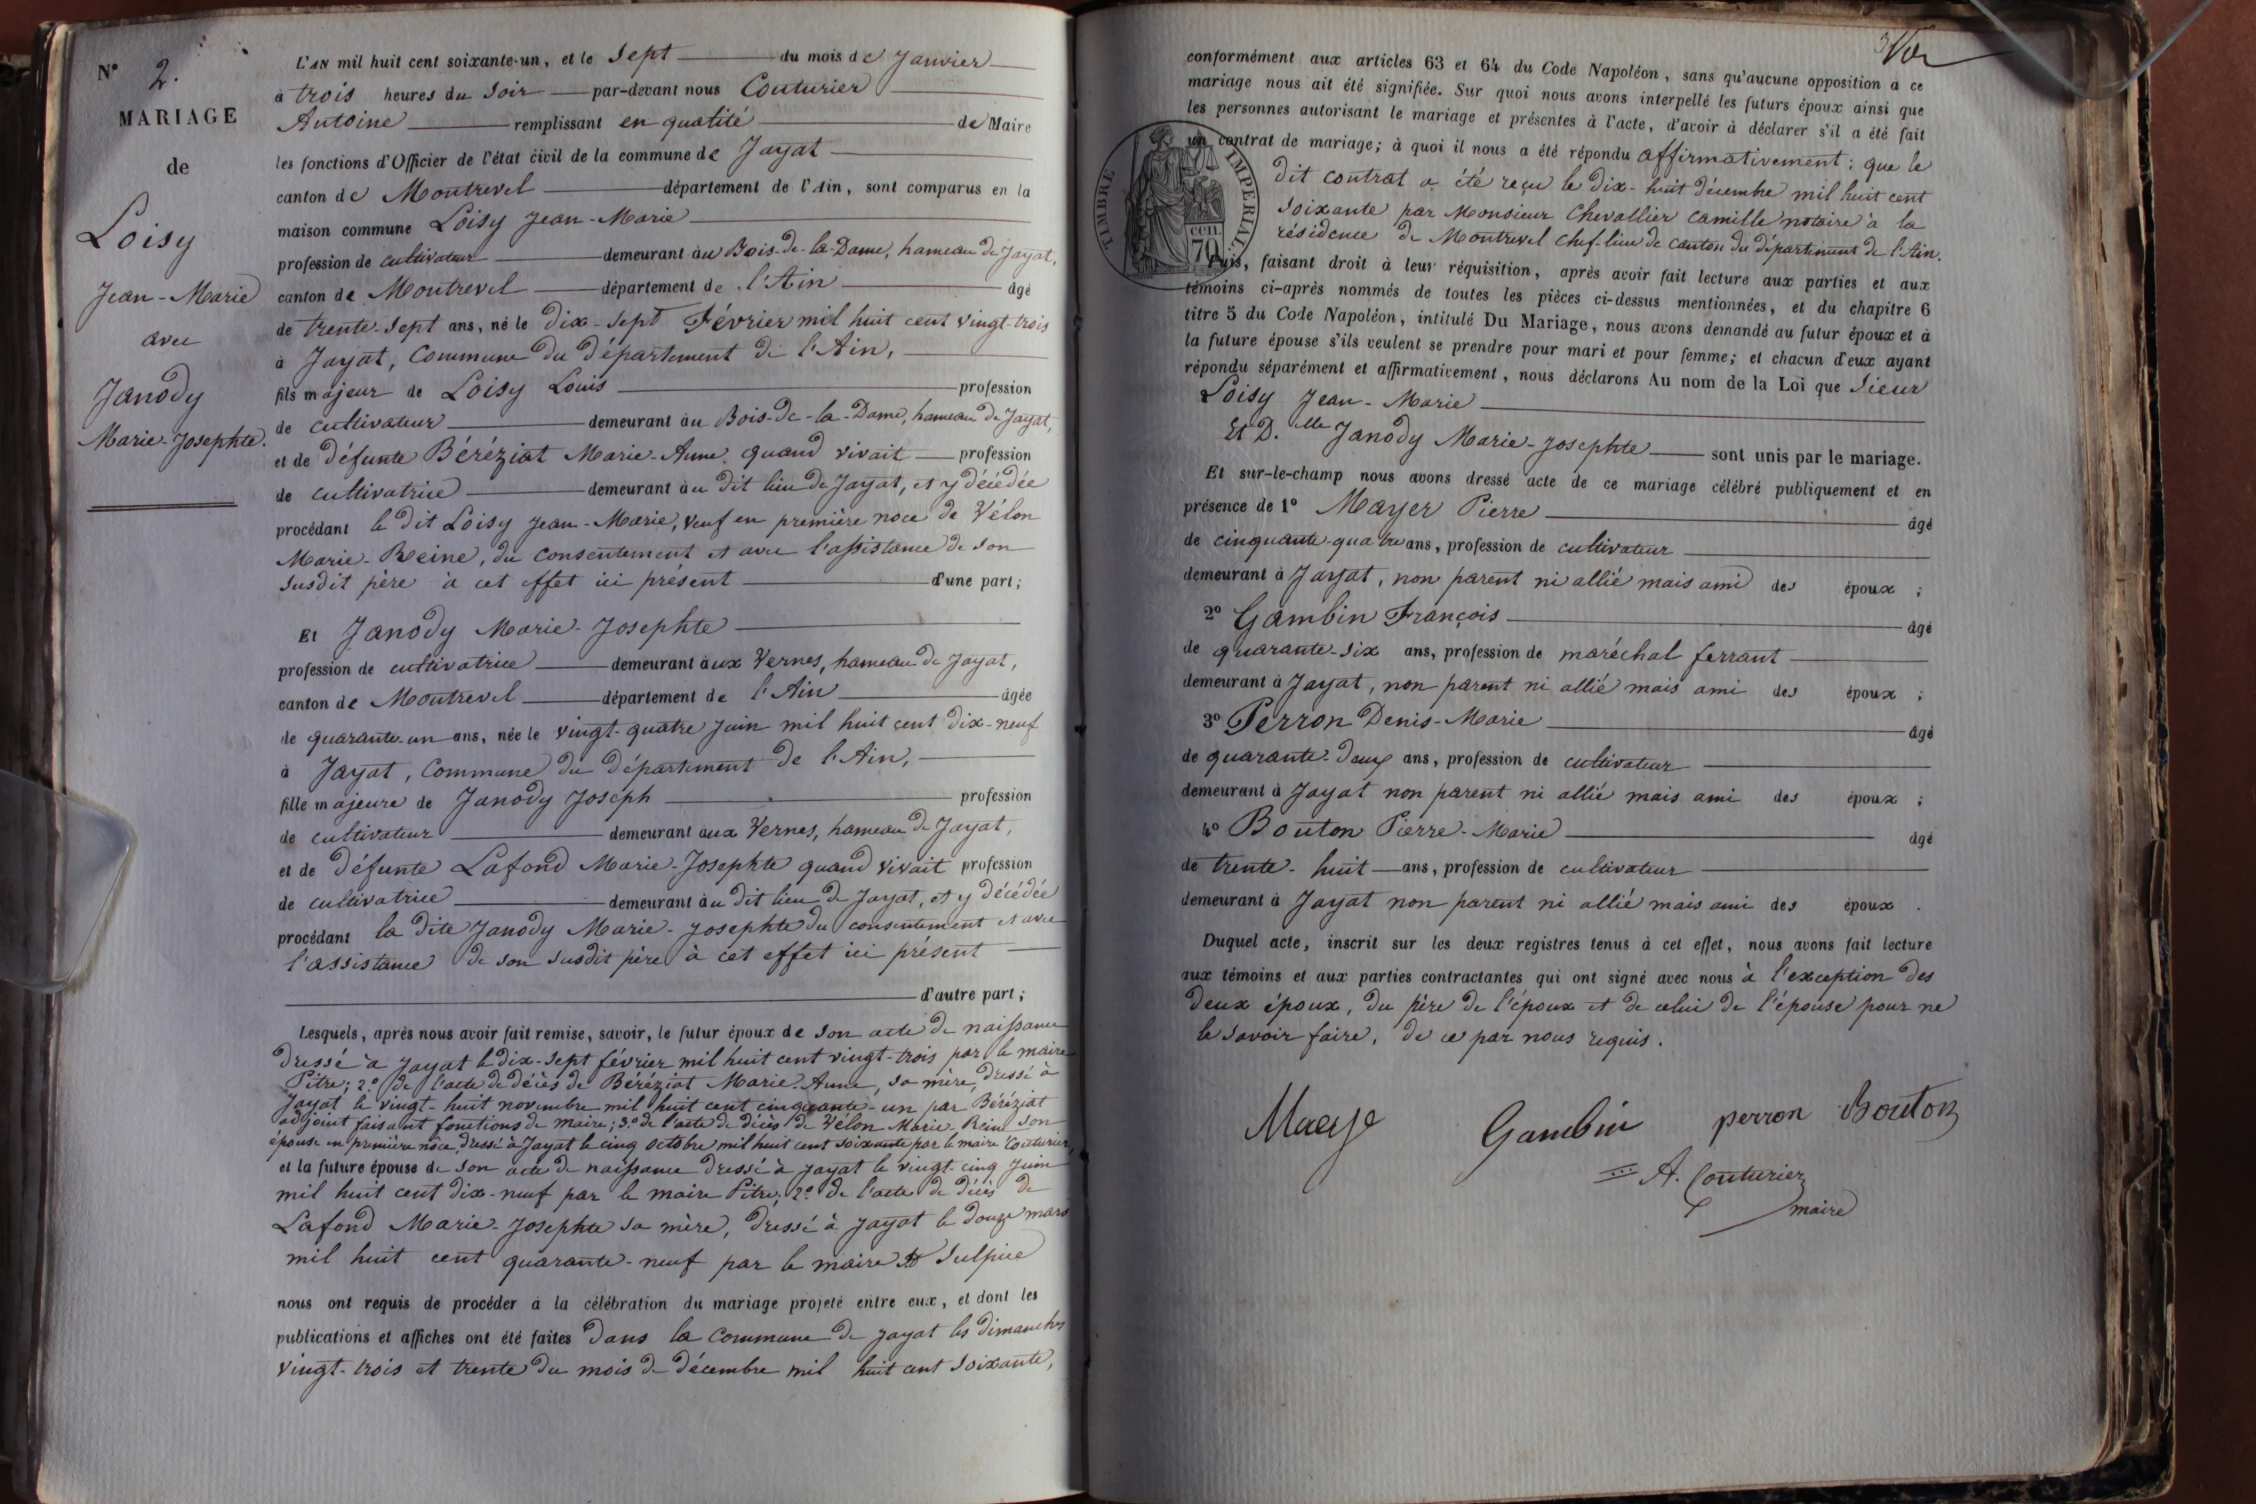 N° 2.
MARIAGE
de
Loisy
Jean-Marie
avec
Janody
Marie-Josephte.
L'AN mil huit cent soixante-un, et le sept du mois de Janvier
à trois heures du soir par-devant nous Couturier
Antoine remplissant en qualité de Maire
les fonctions d'Officier de l'état civil de la commune de Jayat
canton de Montrevel département de l'Ain, sont comparus en la
maison commune Loisy Jean-Marie
profession de cultivateur demeurant au Bois-de-la-Dame, hameau de Jayat,
canton de Montrevel département de l'Ain âgé
de trente-sept ans, né le dix-sept Février mil huit cent vingt-trois
à Jayat, Commune du département de l'Ain,
fils majeur de Loisy Louis profession
de cultivateur demeurant au Bois-de-la-Dame, hameau de Jayat,
et de défunte Béréziat Marie-Anne quand vivait profession
de cultivatrice demeurant au dit lieu de Jayat, et y décédée
procédant le dit Loisy Jean-Marie, veuf en première noce de Vélon
Marie-Reine, du consentement et avec l'assistance de son
susdit père à cet effet ici présent d'une part;
Et Janody Marie-Josephte
profession de cultivatrice demeurant aux Vernes, hameau de Jayat,
canton de Montrevel département de l'Ain âgée
de quarante-un ans, née le vingt-quatre juin mil huit cent dix-neuf
à Jayat, Commune du département de l'Ain,
fille majeure de Janody Joseph profession
de cultivateur demeurant aux Vernes, hameau de Jayat,
et de défunte Lafond Marie-Josephte quand vivait profession
de cultivatrice demeurant au dit lieu de Jayat, et y décédée
procédant la dite Janody Marie-Josephte du consentement et avec
l'assistance de son susdit père à cet effet ici présent
d'autre part;
Lesquels, après nous avoir fait remise, savoir, le futur époux de son acte de naissance
dressé à Jayat le dix-sept février mil huit cent vingt-trois par le maire
Pitre; 2° de l'acte de décès de Béréziat Marie-Anne, sa mère, dressé à
Jayat le vingt-huit novembre mil huit cent cinquante-un par Béréziat
adjoint faisant fonctions de maire; 3° de l'acte de décès de Vélon Marie Reine son
épouse en première noce, dressé à Jayat le cinq octobre mil huit cent soixante par le maire Couturier,
et la future épouse de son acte de naissance dressé à Jayat le vingt-cinq juin
mil huit cent dix-neuf par le maire Pitre; 2° de l'acte de décès de
Lafond Marie-Josephte sa mère, dressé à Jayat le douze mars
mil huit cent quarante-neuf par le maire St Sulpice
nous ont requis de procéder à la célébration du mariage projeté entre eux, et dont les
publications et affiches ont été faites dans la commune de Jayat les dimanches
vingt-trois et trente du mois de décembre mil huit cent soixante,
conformément aux articles 63 et 64 du Code Napoléon, sans qu'aucune opposition à ce
mariage nous ait été signifiée. Sur quoi nous avons interpellé les futurs époux ainsi que
les personnes autorisant le mariage et présentes à l'acte, d'avoir à déclarer s'il a été fait
un contrat de mariage; à quoi il nous a été répondu affirmativement: que le
dit contrat a été reçu le dix-huit décembre mil huit cent
soixante par Monsieur Chevallier Camille notaire à la
résidence de Montrevel chef-lieu de canton du département de l'Ain.
TIMBRE IMPERIAL.
70 CEN.
Puis, faisant droit à leur réquisition, après avoir fait lecture aux parties et aux
témoins ci-après nommés de toutes les pièces ci-dessus mentionnées, et du chapitre 6
titre 5 du Code Napoléon, intitulé Du Mariage, nous avons demandé au futur époux et à
la future épouse s'ils veulent se prendre pour mari et pour femme; et chacun d'eux ayant
répondu séparément et affirmativement, nous déclarons Au nom de la Loi que sieur
Loisy Jean-Marie
Et D.lle Janody Marie-Josephte sont unis par le mariage.
Et sur-le-champ nous avons dressé acte de ce mariage célébré publiquement et en
présence de 1° Mayer Pierre âgé
de cinquante-quatre ans, profession de cultivateur
demeurant à Jayat, non parent ni allié mais ami des époux;
2° Gambin François âgé
de quarante-six ans, profession de maréchal ferrant
demeurant à Jayat, non parent ni allié mais ami des époux;
3° Perron Denis-Marie âgé
de quarante-deux ans, profession de cultivateur
demeurant à Jayat non parent ni allié mais ami des époux;
4° Bouton Pierre-Marie âgé
de trente-huit ans, profession de cultivateur
demeurant à Jayat non parent ni allié mais ami des époux.
Duquel acte, inscrit sur les deux registres tenus à cet effet, nous avons fait lecture
aux témoins et aux parties contractantes qui ont signé avec nous à l'exception des
deux époux, du père de l'époux et de celui de l'épouse pour ne
le savoir faire, de ce par nous requis.
Gambin perron Bouton
A. Couturier
maire